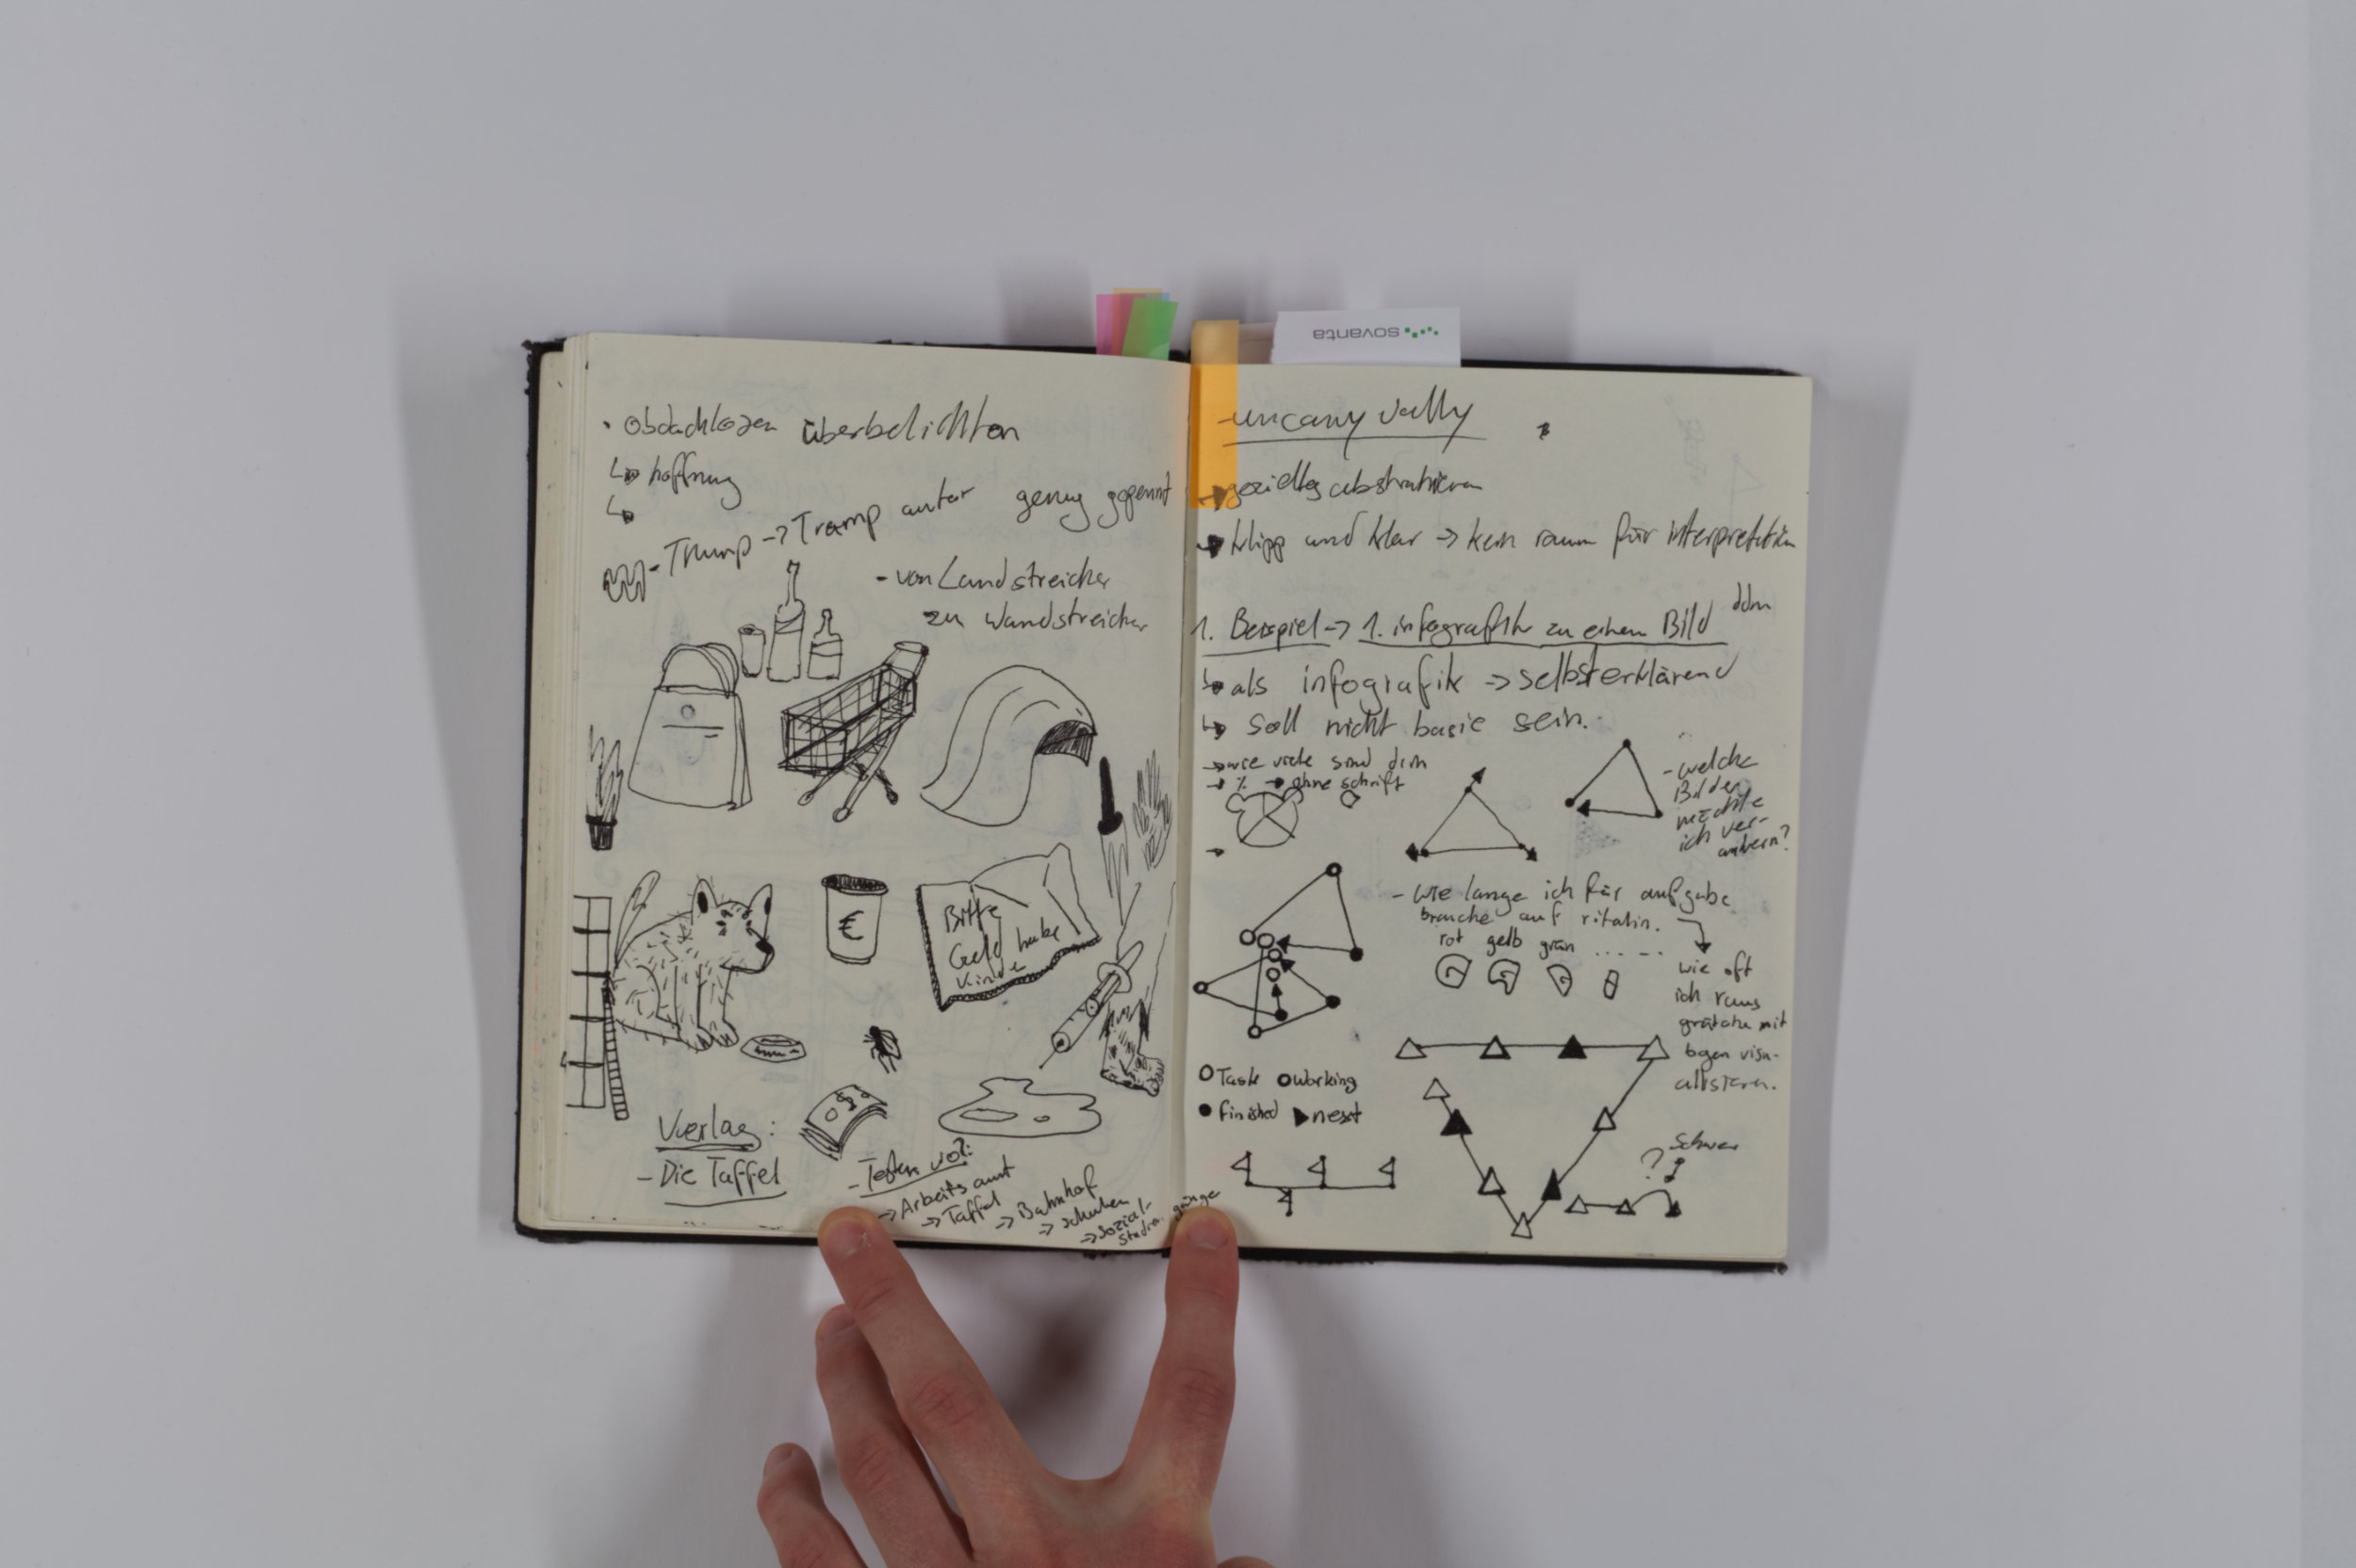 sovanta
• Obdachlosen überbelichten
↳ hoffnung
↳
- Trump -> Tramp unter genug gepennt
- von Landstreicher
zu Wandstreicher
€
Bitte
Geld habe
Kinde
Verlag:
- Die Taffel
-> Arbeitsamt
-> Taffel
-> Bahnhof
-> schulen
-> sozial-
gänge
- uncany vally
klipp und klar -> kein raum für interpretation
1. Beispiel -> 1. infografik zu einem Bild
↳ als infografik -> selbsterklärend
↳ soll nicht basic sein.
-> wie viele sind drin
-> % -> ohne schrift
- welche
Bilder
möchte
ich ver-
- wie lange ich für aufgabe
brauche auf ritalin.
rot gelb grün ... - -
wie oft
ich raus
mit
bgen visu-
alisieren.
Task Working
finished next
? Schwer